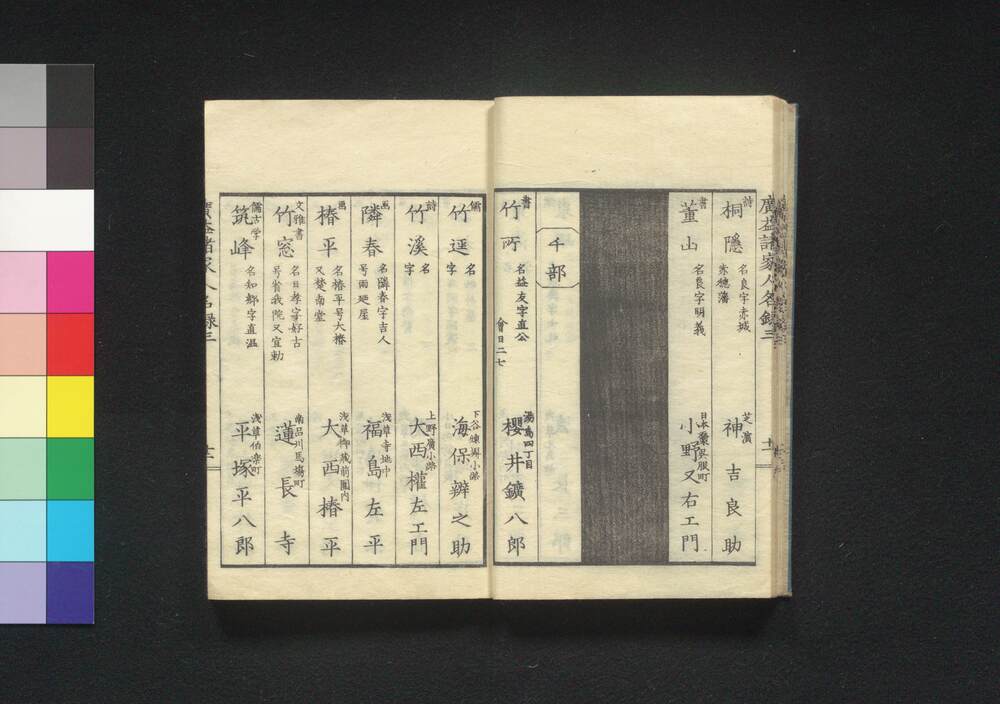 廣益諸家人名録三
十一
詩
桐隱
名良字赤城
芝濱
神吉良助
書
董山
名良字明義
小野又右エ門
チ部
書
竹所
名益友字直公
會日二七
湯島四丁目
櫻井鑛八郎
儒
竹逕
名
字
下谷練塀小路
海保辨之助
詩
竹溪
名
字
上野廣小路
大西權左エ門
画
隣春
名隣春字吉人
号雨廼屋
浅草寺地中
福島左平
画
椿平
名椿平号大椿
又楚南堂
大西椿平
文雅書
竹窓
名日孝字好古
号省我院又宜勅
南品川馬塲町
蓮長寺
儒古学
筑峰
名知郷字直温
浅草伯楽町
平塚平八郎
廣益諸家人名録三